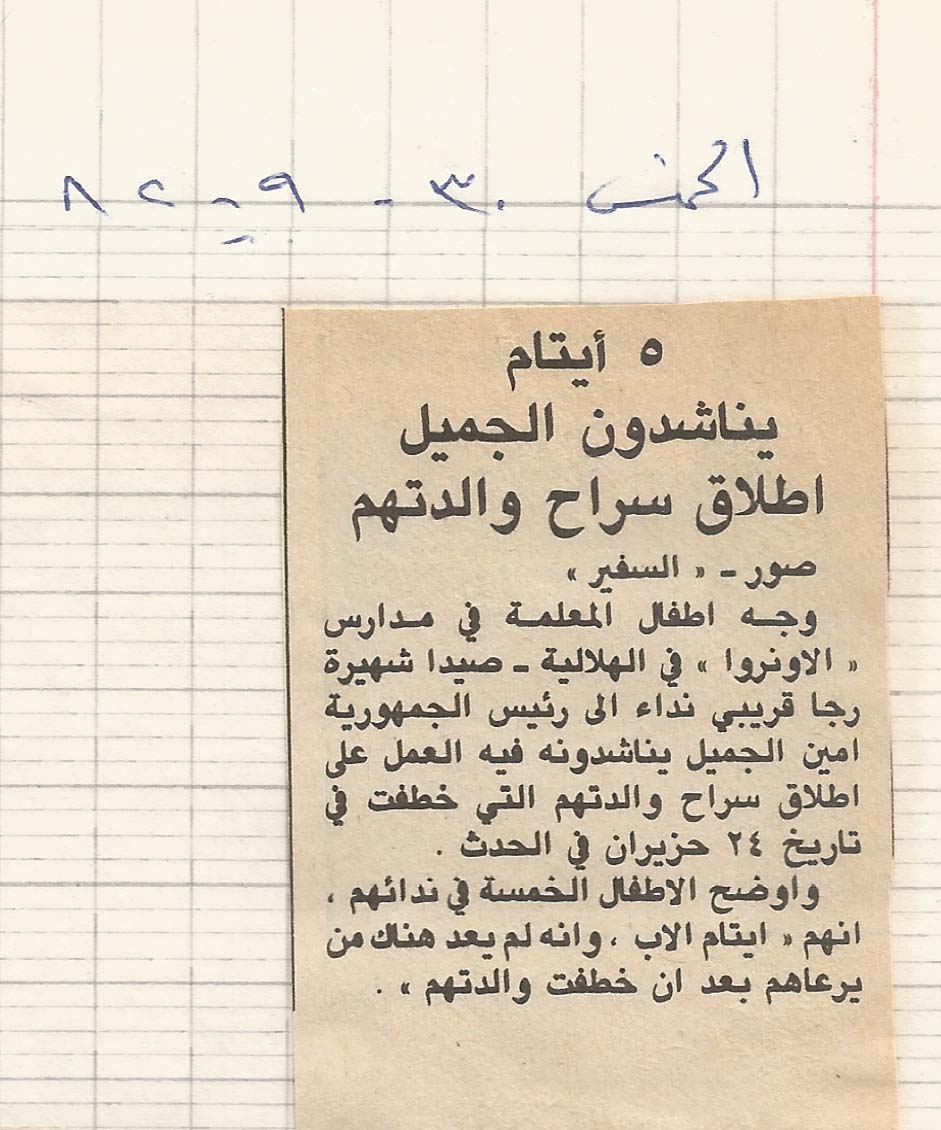 الخميس ٣٠ - ٩ - ٨٢
٥ أيتام
يناشدون الجميل
اطلاق سراح والدتهم
صور ـ « السفير »
وجـه اطفال المعلمـة في مـدارس
« الاونروا » في الهلالية ـ صيدا شهيرة
رجا قريبي نداء الى رئيس الجمهورية
امين الجميل يناشدونه فيه العمل على
اطلاق سراح والدتهم التي خطفت في
تاريخ ٢٤ حزيران في الحدث .
واوضح الاطفال الخمسة في ندائهم ،
انهم « ايتام الاب ، وانه لم يعد هناك من
يرعاهم بعد ان خطفت والدتهم » .